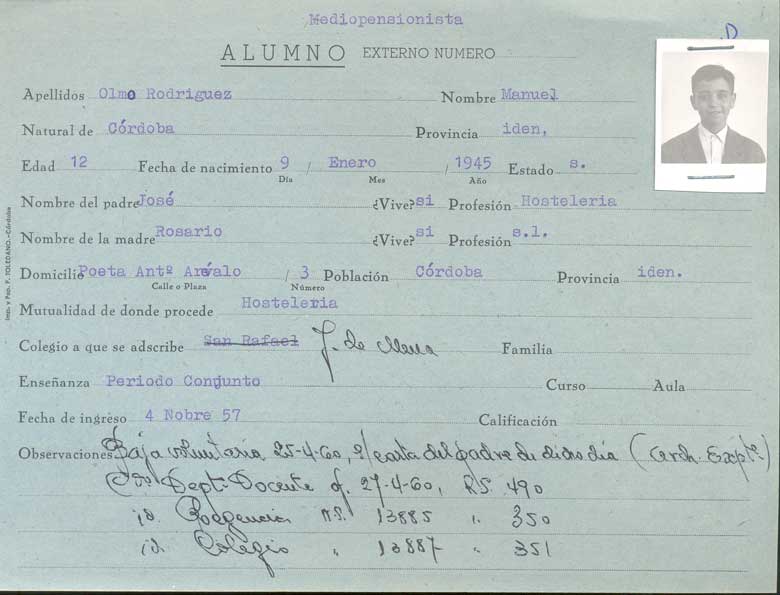 Mediopensionista
D
ALUMNO EXTERNO NUMERO
Apellidos Olmo Rodriguez Nombre Manuel
Natural de Córdoba Provincia iden,
Edad 12 Fecha de nacimiento 9 / Enero / 1945 Estado s.
Día Mes Año
Nombre del padre José ¿Vive? si Profesión Hosteleria
Nombre de la madre Rosario ¿Vive? si Profesión s.l.
Domicilio Poeta Antº Arévalo / 3 Población Córdoba Provincia iden.
Calle o Plaza Número
Mutualidad de donde procede Hosteleria
Colegio a que se adscribe San Rafael J. de Mena Familia
Enseñanza Periodo Conjunto Curso Aula
Fecha de ingreso 4 Nobre 57 Calificación
Observaciones Baja voluntaria 25-4-60, s/ carta del padre de dicho día (Arch. Expte.)
Dept. Docente of. 27-4-60, RS. 490
id. Regencia RS. 13885 " 350
id. Colegio " 13887 " 351
Imp. y Pap. F. TOLEDANO.-Córdoba